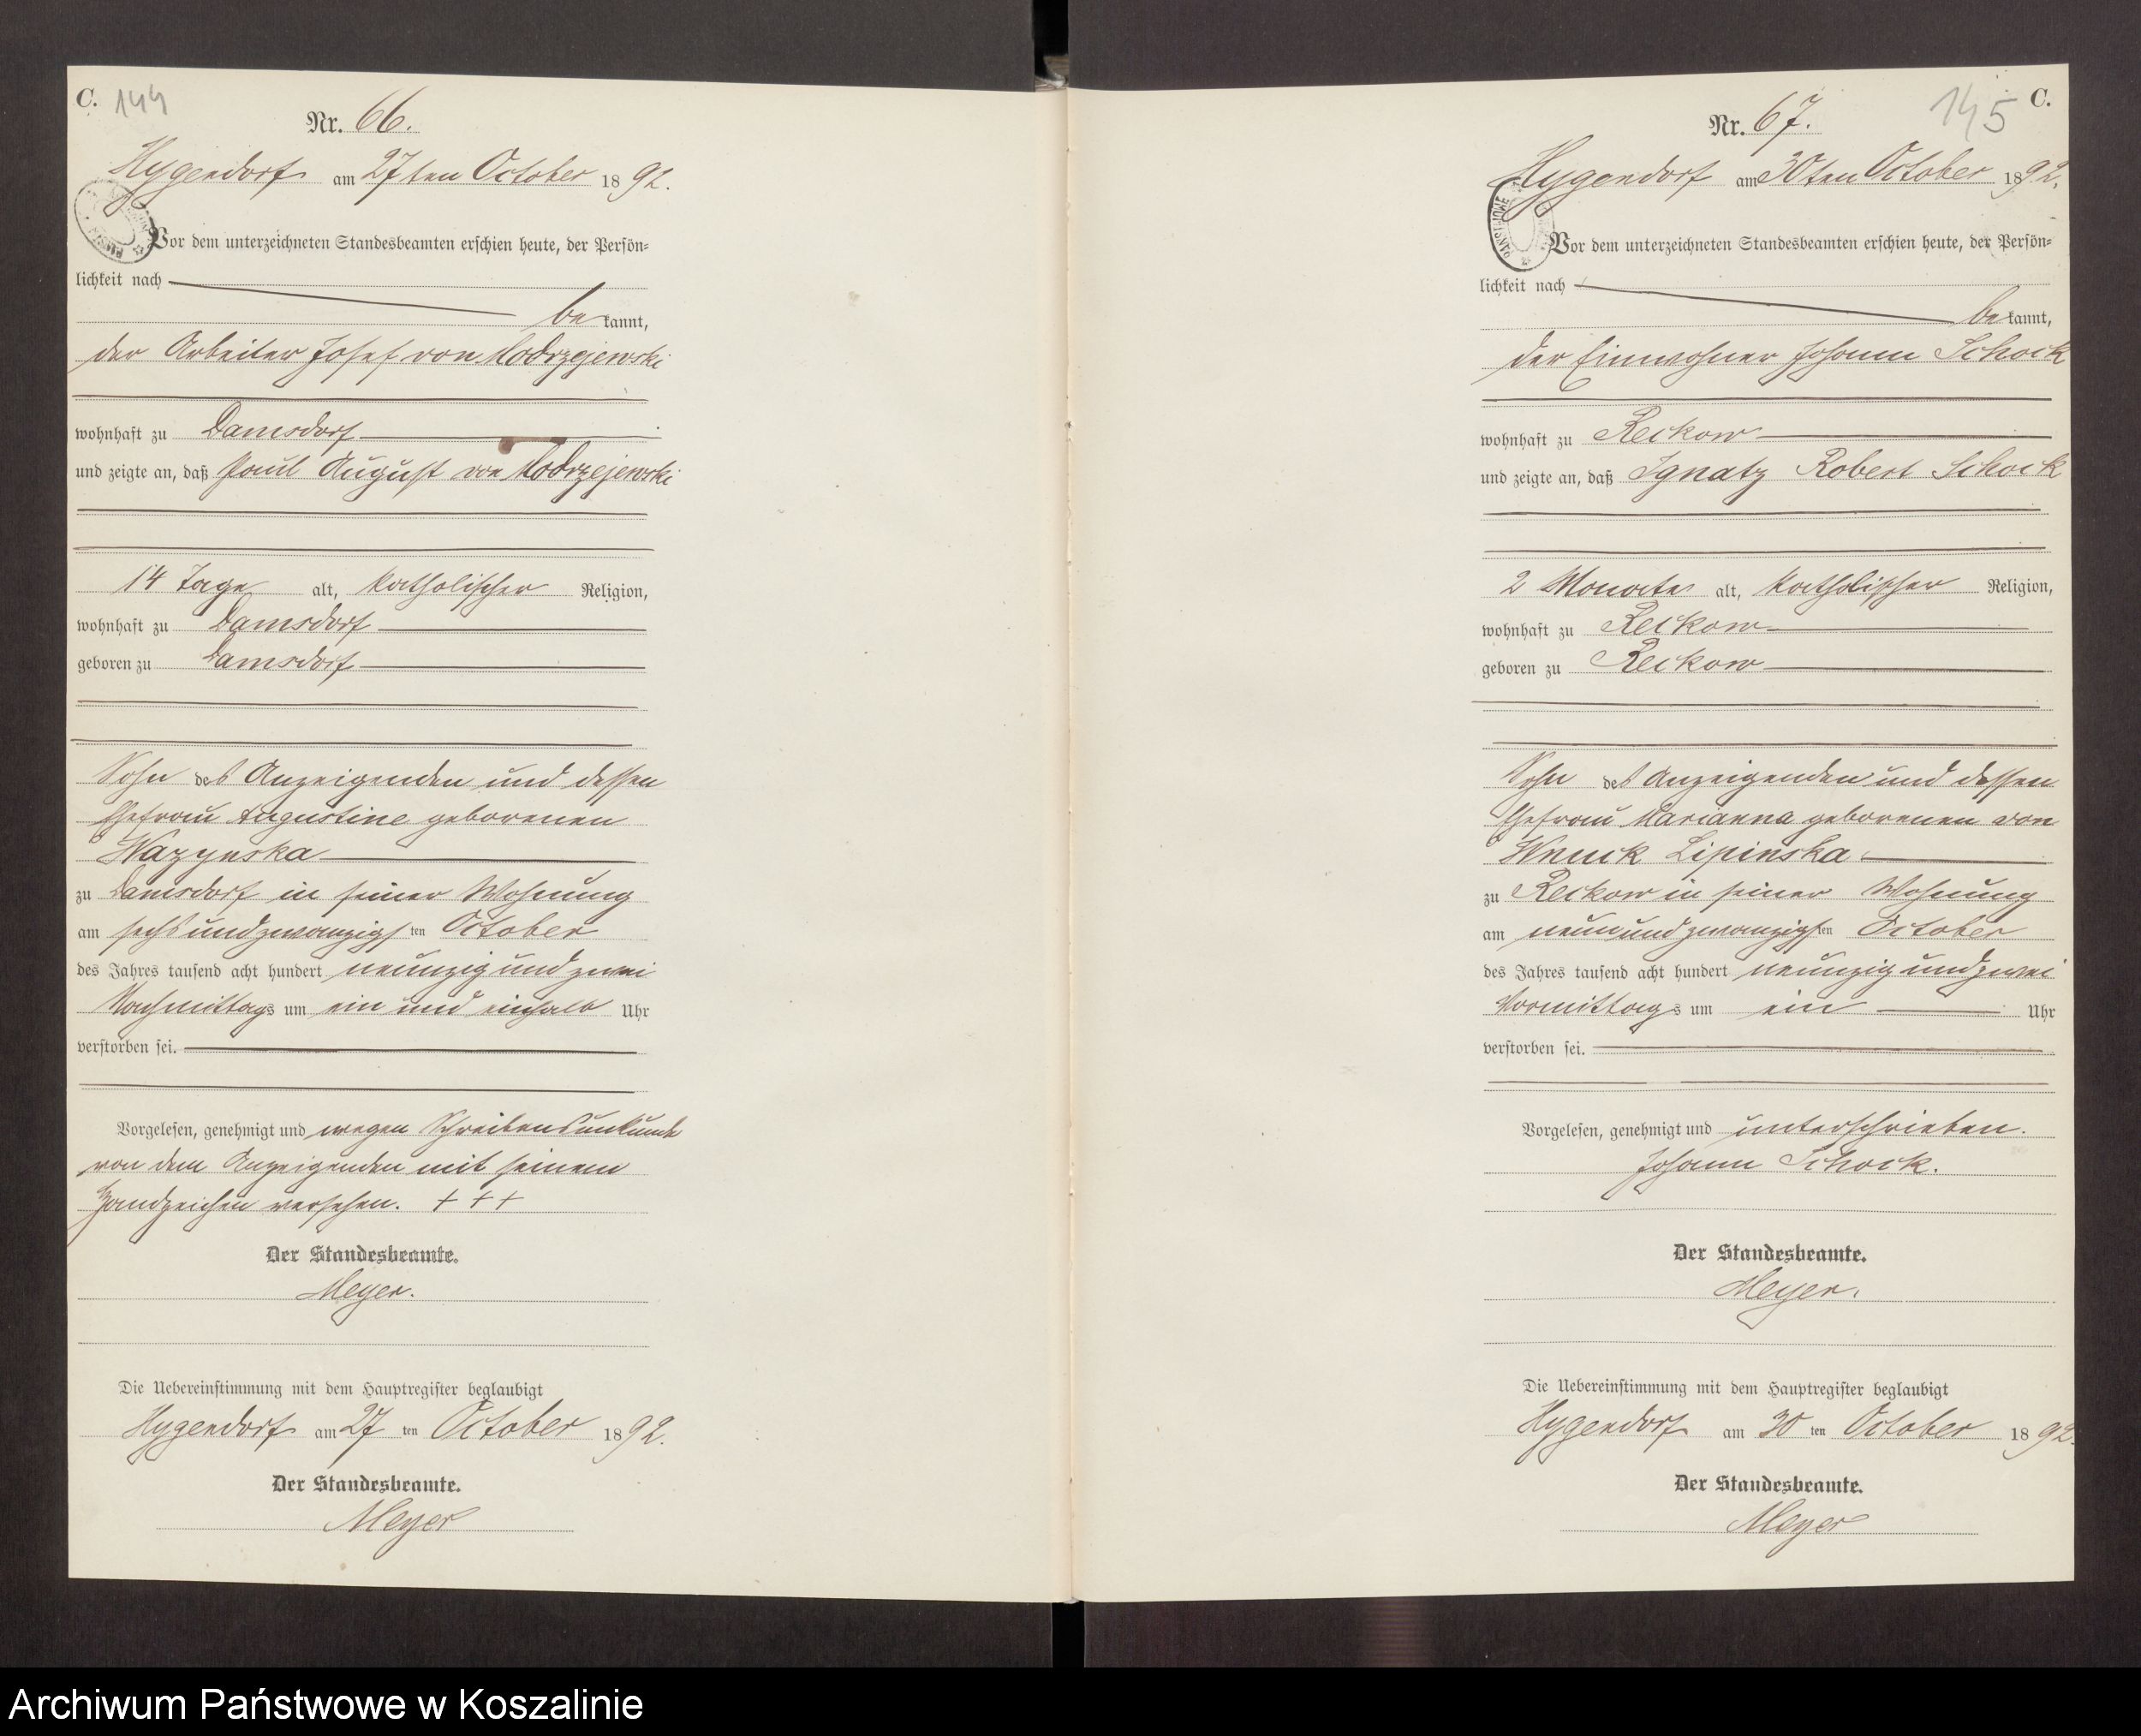 C. 144
Nr. 66.
Hygendorf am 27ten October 1892.
Vor dem unterzeichneten Standesbeamten erschien heute, der Persön-
lichkeit nach
bekannt,
der Arbeiter Josef von Modrzejewski
wohnhaft zu Damsdorf
und zeigte an, daß Paul August von Modrzejewski
14 Tage alt, katholischer Religion,
wohnhaft zu Damsdorf
geboren zu Damsdorf
Sohn des Anzeigenden und dessen
Ehefrau Augustine geborenen
Wazynska
zu Damsdorf in seiner Wohnung
am sechsundzwanzigsten October
des Jahres tausend acht hundert neunzig und zwei
Nachmittags um ein und einhalb Uhr
verstorben sei.
Vorgelesen, genehmigt und wegen Schreibensunkunde
von dem Anzeigenden mit seinem
Handzeichen versehen. + + +
Der Standesbeamte.
Meyer.
Die Uebereinstimmung mit dem Hauptregister beglaubigt
Hygendorf am 27 ten October 1892.
Der Standesbeamte.
Meyer
145 C.
Nr. 67.
Hygendorf am 30ten October 1892.
Vor dem unterzeichneten Standesbeamten erschien heute, der Persön-
lichkeit nach
bekannt,
der Einwohner Johann Schock
wohnhaft zu Reckow
und zeigte an, daß Ignatz Robert Schock
2 Monate alt, katholischer Religion,
wohnhaft zu Reckow
geboren zu Reckow
Sohn des Anzeigenden und dessen
Ehefrau Marianna geborenen von
Wnuck Lipinska
zu Reckow in seiner Wohnung
am neunundzwanzigsten October
des Jahres tausend acht hundert neunzig und zwei
Vormittags um ein Uhr
verstorben sei.
Vorgelesen, genehmigt und unterschrieben.
Johann Schock.
Der Standesbeamte.
Meyer.
Die Uebereinstimmung mit dem Hauptregister beglaubigt
Hygendorf am 30 ten October 1892.
Der Standesbeamte.
Meyer
Archiwum Państwowe w Koszalinie